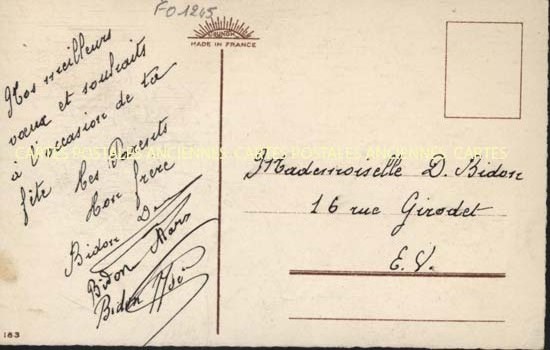 FO1245
MADE IN FRANCE
Nos meilleurs
vœux et souhaits
à l'occasion de ta
fête Tes Parents
Ton frère
Bidon
Bidon Marc
Bidon
Mademoiselle D. Bidon
16 rue Girodet
E. V.
CARTES POSTALES ANCIENNES CARTES POSTALES ANCIENNES CARTES
183